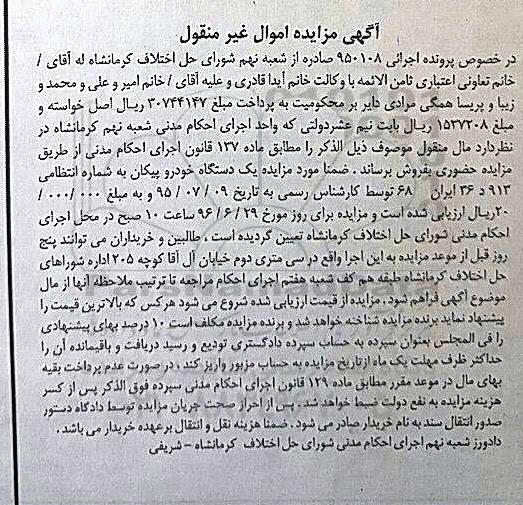 آگهی مزایده اموال غیر منقول
در خصوص پرونده اجرائی ۹۵۰۱۰۸ صادره از شعبه نهم شورای حل اختلاف کرمانشاه له آقای /
خانم تعاونی اعتباری ثامن الائمه با وکالت خانم آیدا قادری و علیه آقای / خانم امیر و علی و محمد و
زیبا و پریسا همگی مرادی دایر بر محکومیت به پرداخت مبلغ ۳۰۷۴۴۱۴۷ ریال اصل خواسته و
مبلغ ۱۵۳۷۲۰۸ ریال بابت نیم عشردولتی که واحد اجرای احکام مدنی شعبه نهم کرمانشاه در
نظردارد مال منقول موصوف ذیل الذکر را مطابق ماده ۱۳۷ قانون اجرای احکام مدنی از طریق
مزایده حضوری بفروش برساند . ضمنا مورد مزایده یک دستگاه خودرو پیکان به شماره انتظامی
۹۱۳ د ۳۶ ایران ۶۸ توسط کارشناس رسمی به تاریخ ۰۹ / ۰۷ / ۹۵ و به مبلغ ۰۰۰/ ۰۰۰/
۲۰ریال ارزیابی شده است و مزایده برای روز مورخ ۲۹ / ۶ / ۹۶ ساعت ۱۰ صبح در محل اجرای
احکام مدنی شورای حل اختلاف کرمانشاه تعیین گردیده است ، طالبین و خریداران می توانند پنج
روز قبل از موعد مزایده به این اجرا واقع در سی متری دوم خیابان آل آقا کوچه ۲۰۵ اداره شوراهای
حل اختلاف کرمانشاه طبقه هم کف شعبه هفتم اجرای احکام مراجعه تا ترتیب ملاحظه آنها از مال
موضوع آگهی فراهم شود . مزایده از قیمت ارزیابی شده شروع می شود هر کس که بالاترین قیمت را
پیشنهاد نماید برنده مزایده شناخته خواهد شد و برنده مزایده مکلف است ۱۰ درصد بهای پیشنهادی
را فی المجلس بعنوان سپرده به حساب سپرده دادگستری تودیع و رسید دریافت و باقیمانده آن را
حداکثر ظرف مهلت یک ماه ازتاریخ مزایده به حساب مزبور واریز کند ، در صورت عدم پرداخت بقیه
بهای مال در موعد مقرر مطابق ماده ۱۲۹ قانون اجرای احکام مدنی سپرده فوق الذکر پس از کسر
هزینه مزایده به نفع دولت ضبط خواهد شد . پس از احراز صحت جریان مزایده توسط دادگاه دستور
صدور انتقال سند به نام خریدار صادر می شود . ضمنا هزینه نقل و انتقال برعهده خریدار می باشد .
دادورز شعبه نهم اجرای احکام مدنی شورای حل اختلاف کرمانشاه - شریفی